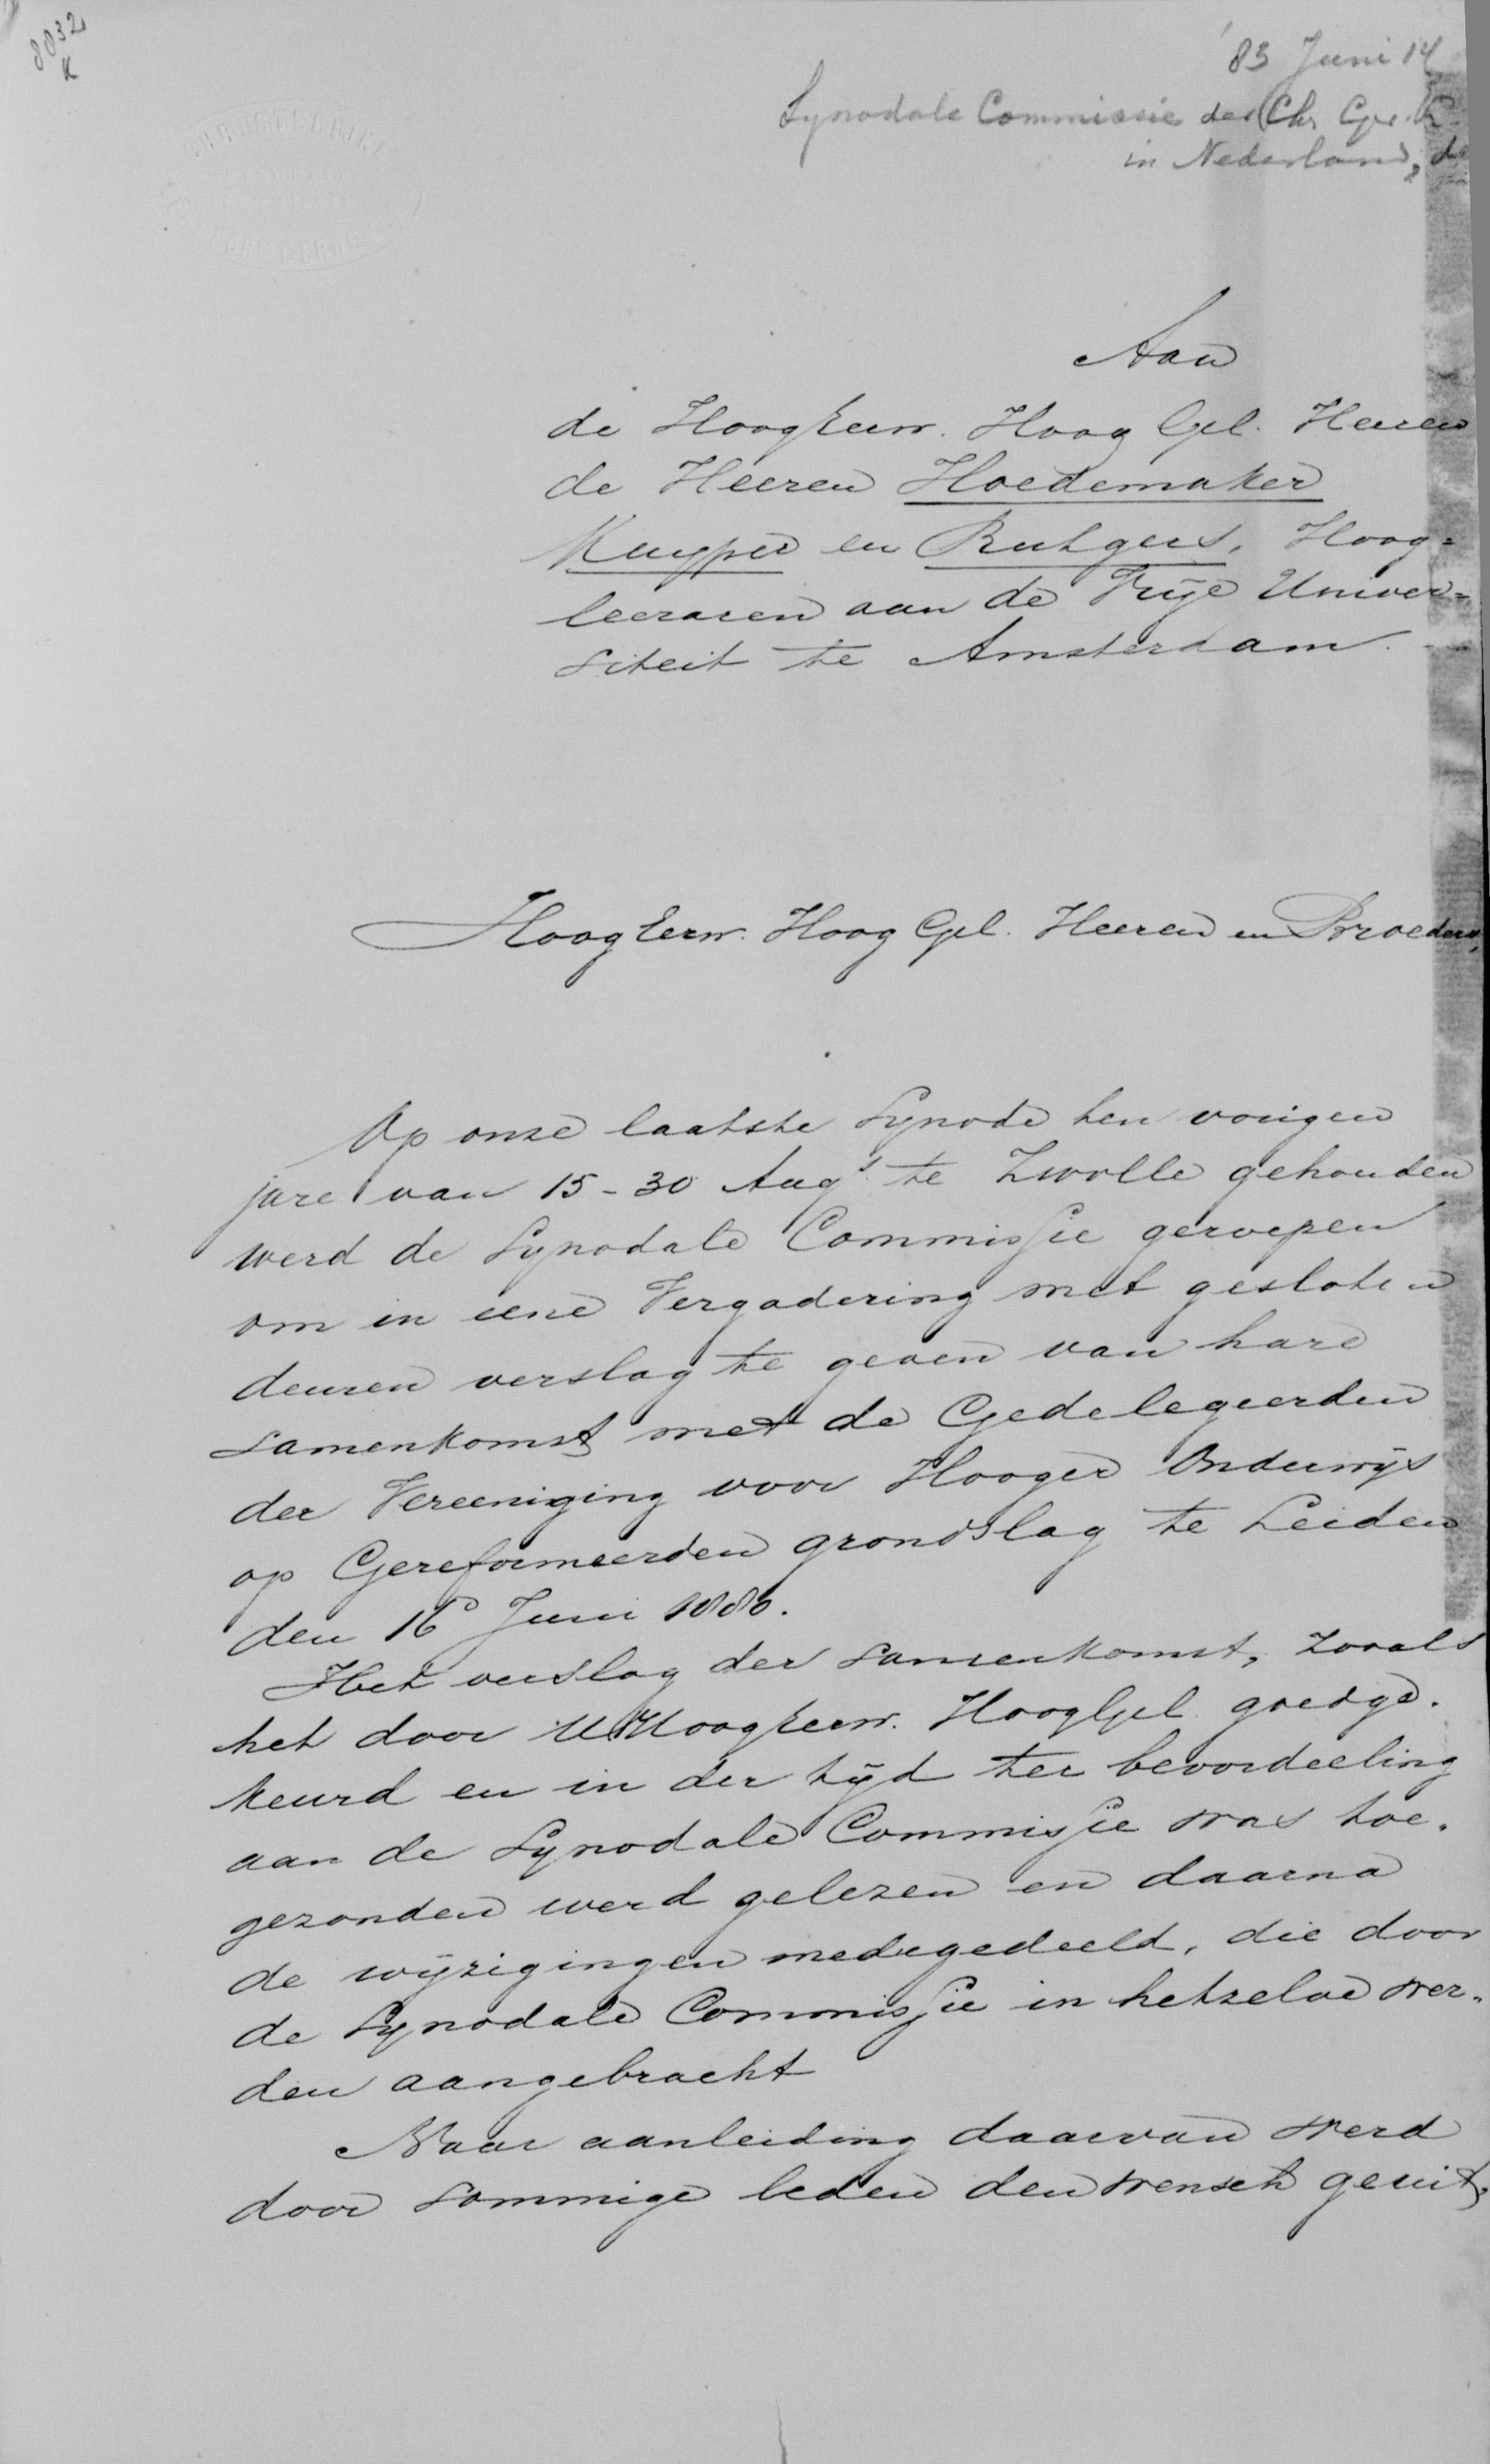 8032
K
'83 Juni 14
Synodale Commissie der Chr. Ger. K
in Nederland, de
Aan
de HoogEerw. Hoog Gel. Heeren
de Heeren Hoedemaker
Kuyper en Rutgers, Hoog=
leeraren aan de Vrije Univer=
siteit te Amsterdam.
HoogEerw. Hoog Gel. Heeren en Broeders,
Op onze laatste Synode ten vorigen
jare van 15-30 Augs te Zwolle gehouden
werd de Synodale Commissie geroepen
om in eene Vergadering met gesloten
deuren verslag te geven van hare
samenkomst met de Gedelegeerden
der Vereeniging voor Hooger Onderwijs
op Gereformeerden grondslag te Leiden
den 16 Juni 1880.
Het verslag der samenkomst, zooals
het door UHoogEerw. HoogGel. goedge-
keurd en in der tijd ter beoordeeling
aan de Synodale Commissie was toe-
gezonden werd gelezen en daarna
de wijzigingen medegedeeld, die door
de Synodale Commissie in hetzelve wer-
den aangebracht
Naar aanleiding daarvan werd
door sommige leden den wensch geuit,